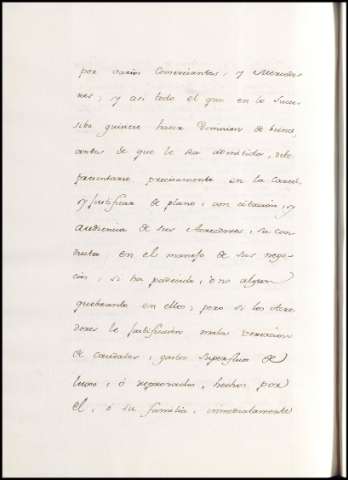 por varios Comerciantes, y Mercade-
res; y así todo el que en lo suce-
sibo quiciere hacer Dimision de bienes,
antes de que le sea admitida, debe
presentarse precisamente en la Carcel,
y justificar de plano, con citación, y
audiencia de sus Acreedores, su con-
ducta en el manejo de sus nego-
cios, si ha padecido, ó no algun
quebranto en ellos; pero si los Acre-
dores le justificasen mala versacion
de caudales, gastos superfluos de
luxos, ó reprovados, hechos por
él, ó su familia, inmediatamente